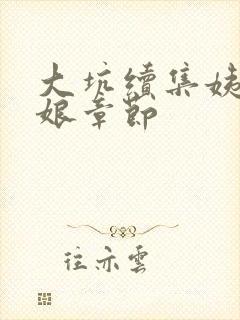 大坑續集姨
娘章節
往亦雲